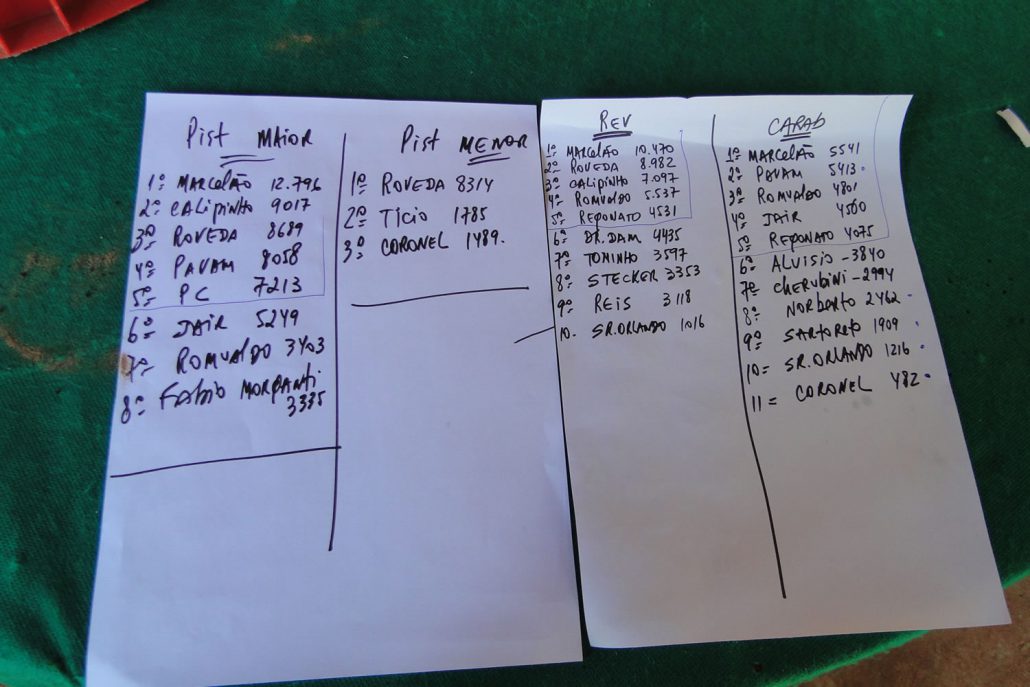 Pist MAIOR
1º MARCELÃO 12.796
2º CALIPINHO 9017
3º ROVEDA 8689
4º PAVAM 8058
5º PC 7213
6º JAIR 5249
7º ROMUALDO 3403
8º FABIO MORGANTI
3335
Pist MENOR
1º ROVEDA 8314
2º TICIO 1785
3º CORONEL 1489.
REV
1º MARCELÃO 10.470
2º ROVEDA 8.982
3º CALIPINHO 7.097
4º ROMUALDO 5.537
5º REPONATO 4531
6º DR.DAM 4435
7º TONINHO 3597
8º STECKER 3353
9º REIS 3118
10- SR.ORLANDO 1016
CARAB
1º MARCELÃO 5541
2º PAVAM 5413.
3º ROMUALDO 4801
4º JAIR 4560
5º REPONATO 4075
6º ALVISIO -3840
7º CHERUBINI -2994
8º NORBERTO 2462.
9º 1909
10= SR.ORLANDO 1216.
11= CORONEL 482.